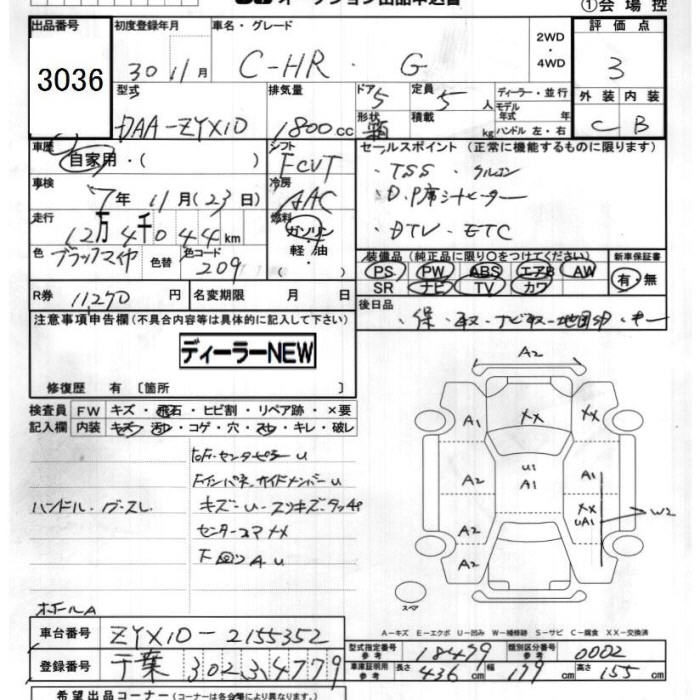 ①会場控
出品番号 3036
初度登録年月 30 11月
車名・グレード C-HR・G
2WD・4WD
評価点 3
外装 内装 C B
型式 DAA-ZYX10
排気量 1800cc
ドア 5 形状
定員 5人 積載 kg
ディーラー・並行
モデル年式 年式
ハンドル 左・右
車歴 自家用・( )
シフト FCVT
セールスポイント (正常に機能するものに限ります)
・TSS・クルコン
・D.P席シートヒーター
・DTV・ETC
車検 7年11月(23日)
冷房 AAC
走行 12万4千044km
燃料 ガソリン・軽油・( )
色 ブラックマイカ 色替 色コード 209
装備品 (純正品に限り○をつけてください)
PS PW ABS エアB AW
SR ナビ TV カワ
新車保証書 有・無
R券 11270円 名変期限 月 日
後日品
・保・取・ナビ取・地図SD・キー
注意事項申告欄(不具合内容等は具体的に記入して下さい)
ディーラーNEW
修復歴 有 〔箇所 〕
検査員記入欄
FW キズ・飛石・ヒビ割・リペア跡・×要
内装 キズ・汚レ・コゲ・穴・スレ・キレ・破レ
ハンドル・
キズ
A2
A1 XX XX
U1 A1
A1
A2
XX UA1 W2
A2
A2
A2
スペア
A-キズ E-エクボ U-凹み W-補修跡 S-サビ C-腐食 XX-交換済
車台番号 ZYX10-2155352
登録番号 千葉 302 4779
型式指定番号 参考 18499 類別区分番号 参考 0002
車庫証明用 参考 長さ 436cm 幅 179cm 高さ 155cm
希望出品コーナー(コーナーは各会場により異なります)